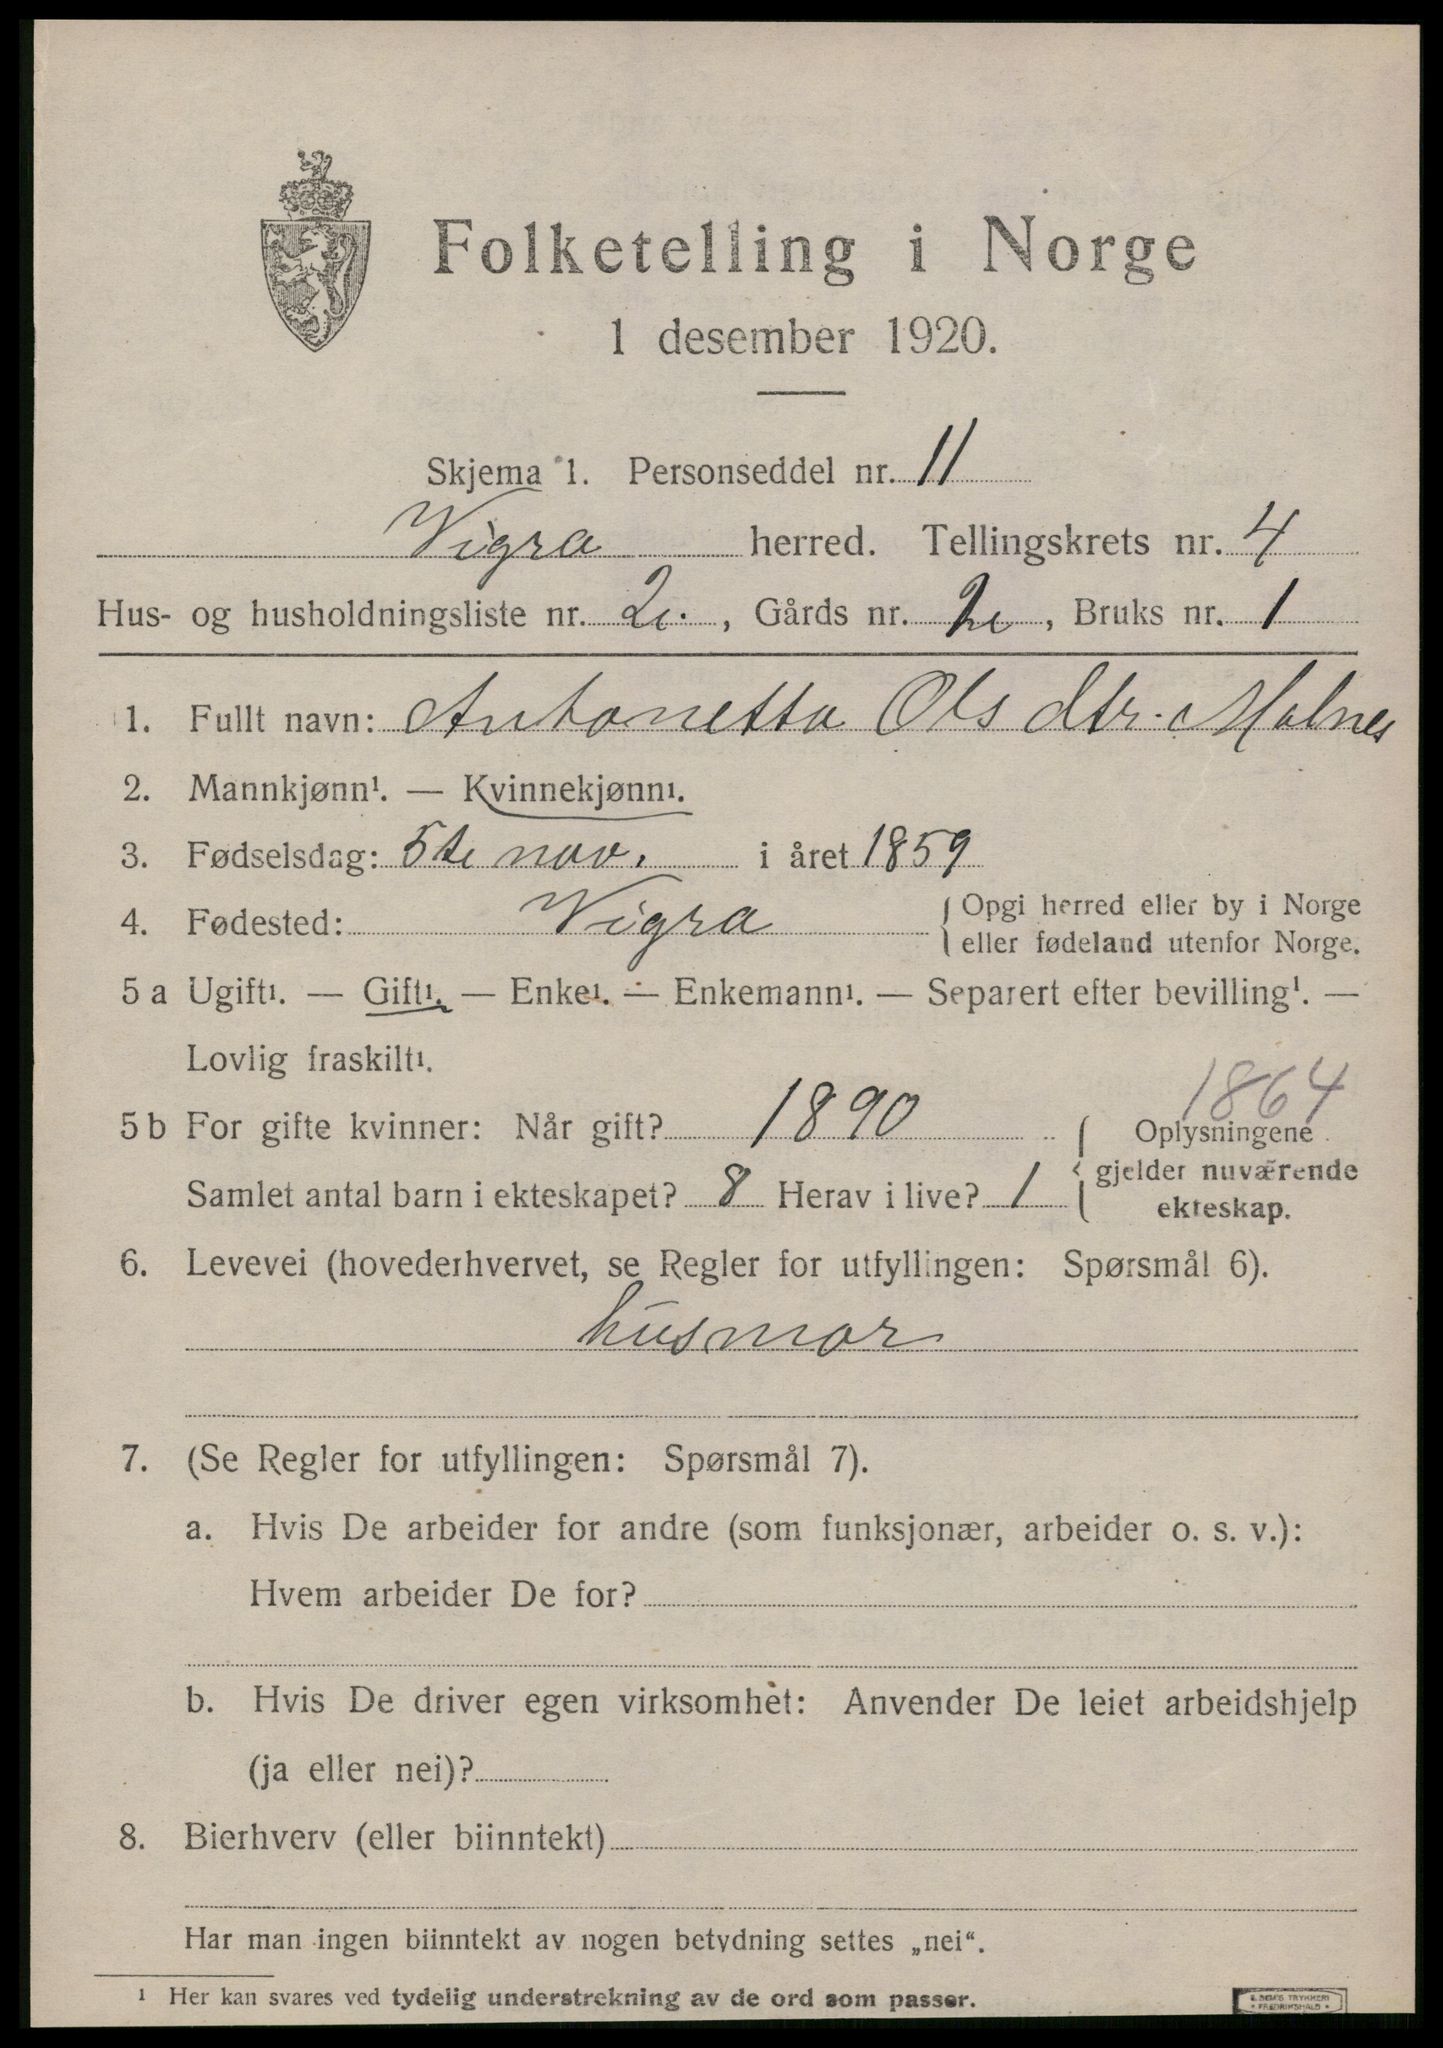 Folketelling i Norge
1 desember 1920.
Skjema 1. Personseddel nr. 11
Vigra herred. Tellingskrets nr. 4
Hus- og husholdningsliste nr. 2. , Gårds nr. 2 , Bruks nr. 1
1. Fullt navn: Antonetta Ols dtr. Molnes
2. Mannkjønn¹. — Kvinnekjønn¹.
3. Fødselsdag: 5te nov. i året 1859
4. Fødested: Vigra { Opgi herred eller by i Norge
eller fødeland utenfor Norge.
5 a Ugift¹. — Gift¹. — Enke¹. — Enkemann¹. — Separert efter bevilling¹. —
Lovlig fraskilt¹.
1864
5 b For gifte kvinner: Når gift? 1890 { Oplysningene
gjelder nuværende
Samlet antal barn i ekteskapet? 8 Herav i live? 1 ekteskap.
6. Levevei (hovederhvervet, se Regler for utfyllingen: Spørsmål 6).
husmor
7. (Se Regler for utfyllingen: Spørsmål 7).
a. Hvis De arbeider for andre (som funksjonær, arbeider o. s. v.):
Hvem arbeider De for?
b. Hvis De driver egen virksomhet: Anvender De leiet arbeidshjelp
(ja eller nei)?
8. Bierhverv (eller biinntekt)
Har man ingen biinntekt av nogen betydning settes „nei“.
¹ Her kan svares ved tydelig understrekning av de ord som passer.
E. SEM'S TRYKKERI
• FREDRIKSHALD •